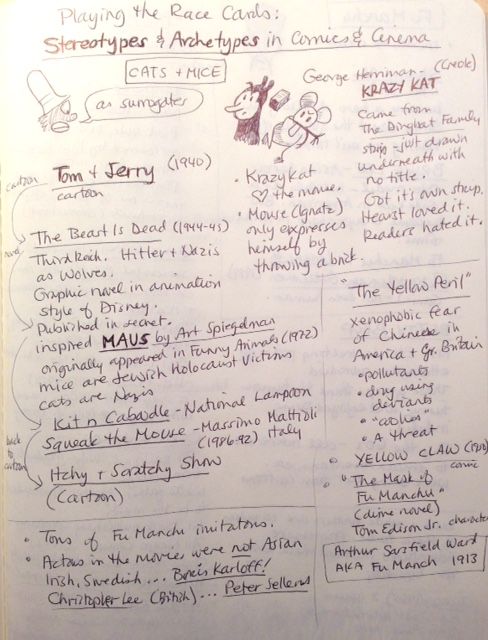 Playing the Race Cards:
Stereotypes & Archetypes in Comics & Cinema
CATS + MICE
as surrogates
George Herriman - (Creole)
KRAZY KAT
came from
The Dingbat Family
strip - just drawn
underneath with
no title.
Got it's own strip.
Hearst loved it.
Readers hated it.
• Krazy Kat
♡ the mouse.
• Mouse (Ignatz)
only expresses
himself by
throwing a brick.
cartoon
Tom + Jerry (1940)
cartoon
novel
The Beast Is Dead (1944-45)
Third Reich. Hitler + Nazis
as Wolves.
Graphic novel in animation
style of Disney.
Published in secret.
inspired MAUS by Art Spiegelman
originally appeared in Funny Animals (1972)
mice are Jewish Holocaust Victims
cats are Nazis
Kit n Caboodle - National Lampoon
Squeak the Mouse - Massimo Mattioli
(1986-92) Italy
back to
cartoon
Itchy + Scratchy Show
(Cartoon)
"The Yellow Peril"
xenophobic fear
of Chinese in
America + Gr. Britain
• pollutants
• drug using
deviants
• "coolies"
• A threat
• YELLOW CLAW
comic
• "The Mask of
Fu Manchu"
(dime novel)
Tom Edison Jr. character
Arthur Sarsfield Ward
AKA Fu Manch 1913
• Tons of Fu Manchu imitators.
• Actors in the movies were not Asian
Irish, Swedish... Boris Karloff!
Christopher Lee (British)... Peter Sellers